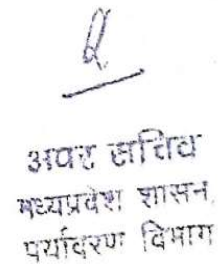 अवर सचिव
मध्यप्रदेश शासन,
पर्यावरण विभाग